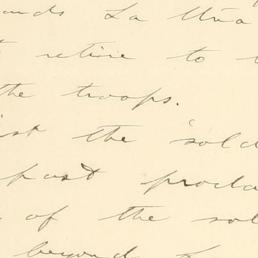 La Uña
retire to
the troops.
the sold
past procla
of the sol
beyond